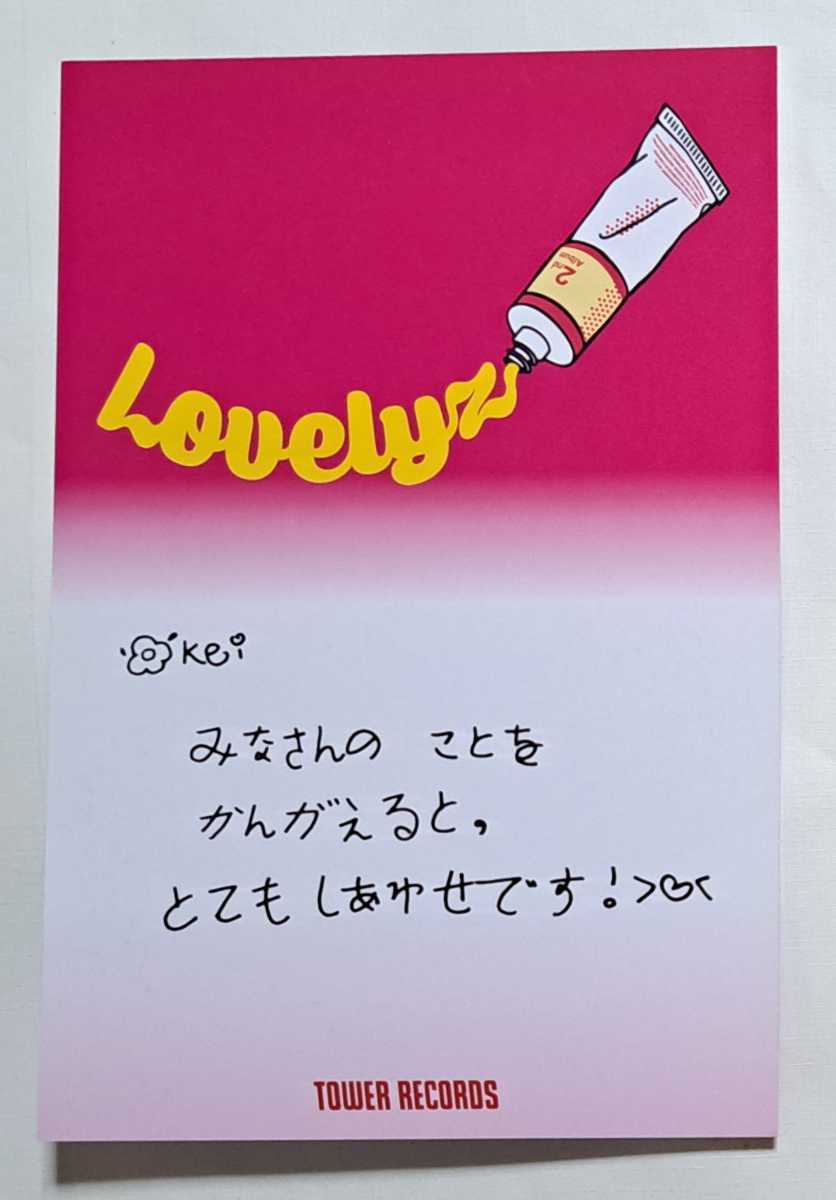 2nd
Album
Lovelyz
Kei
みなさんの ことを
かんがえると,
とても しあわせです!>♡<
TOWER RECORDS